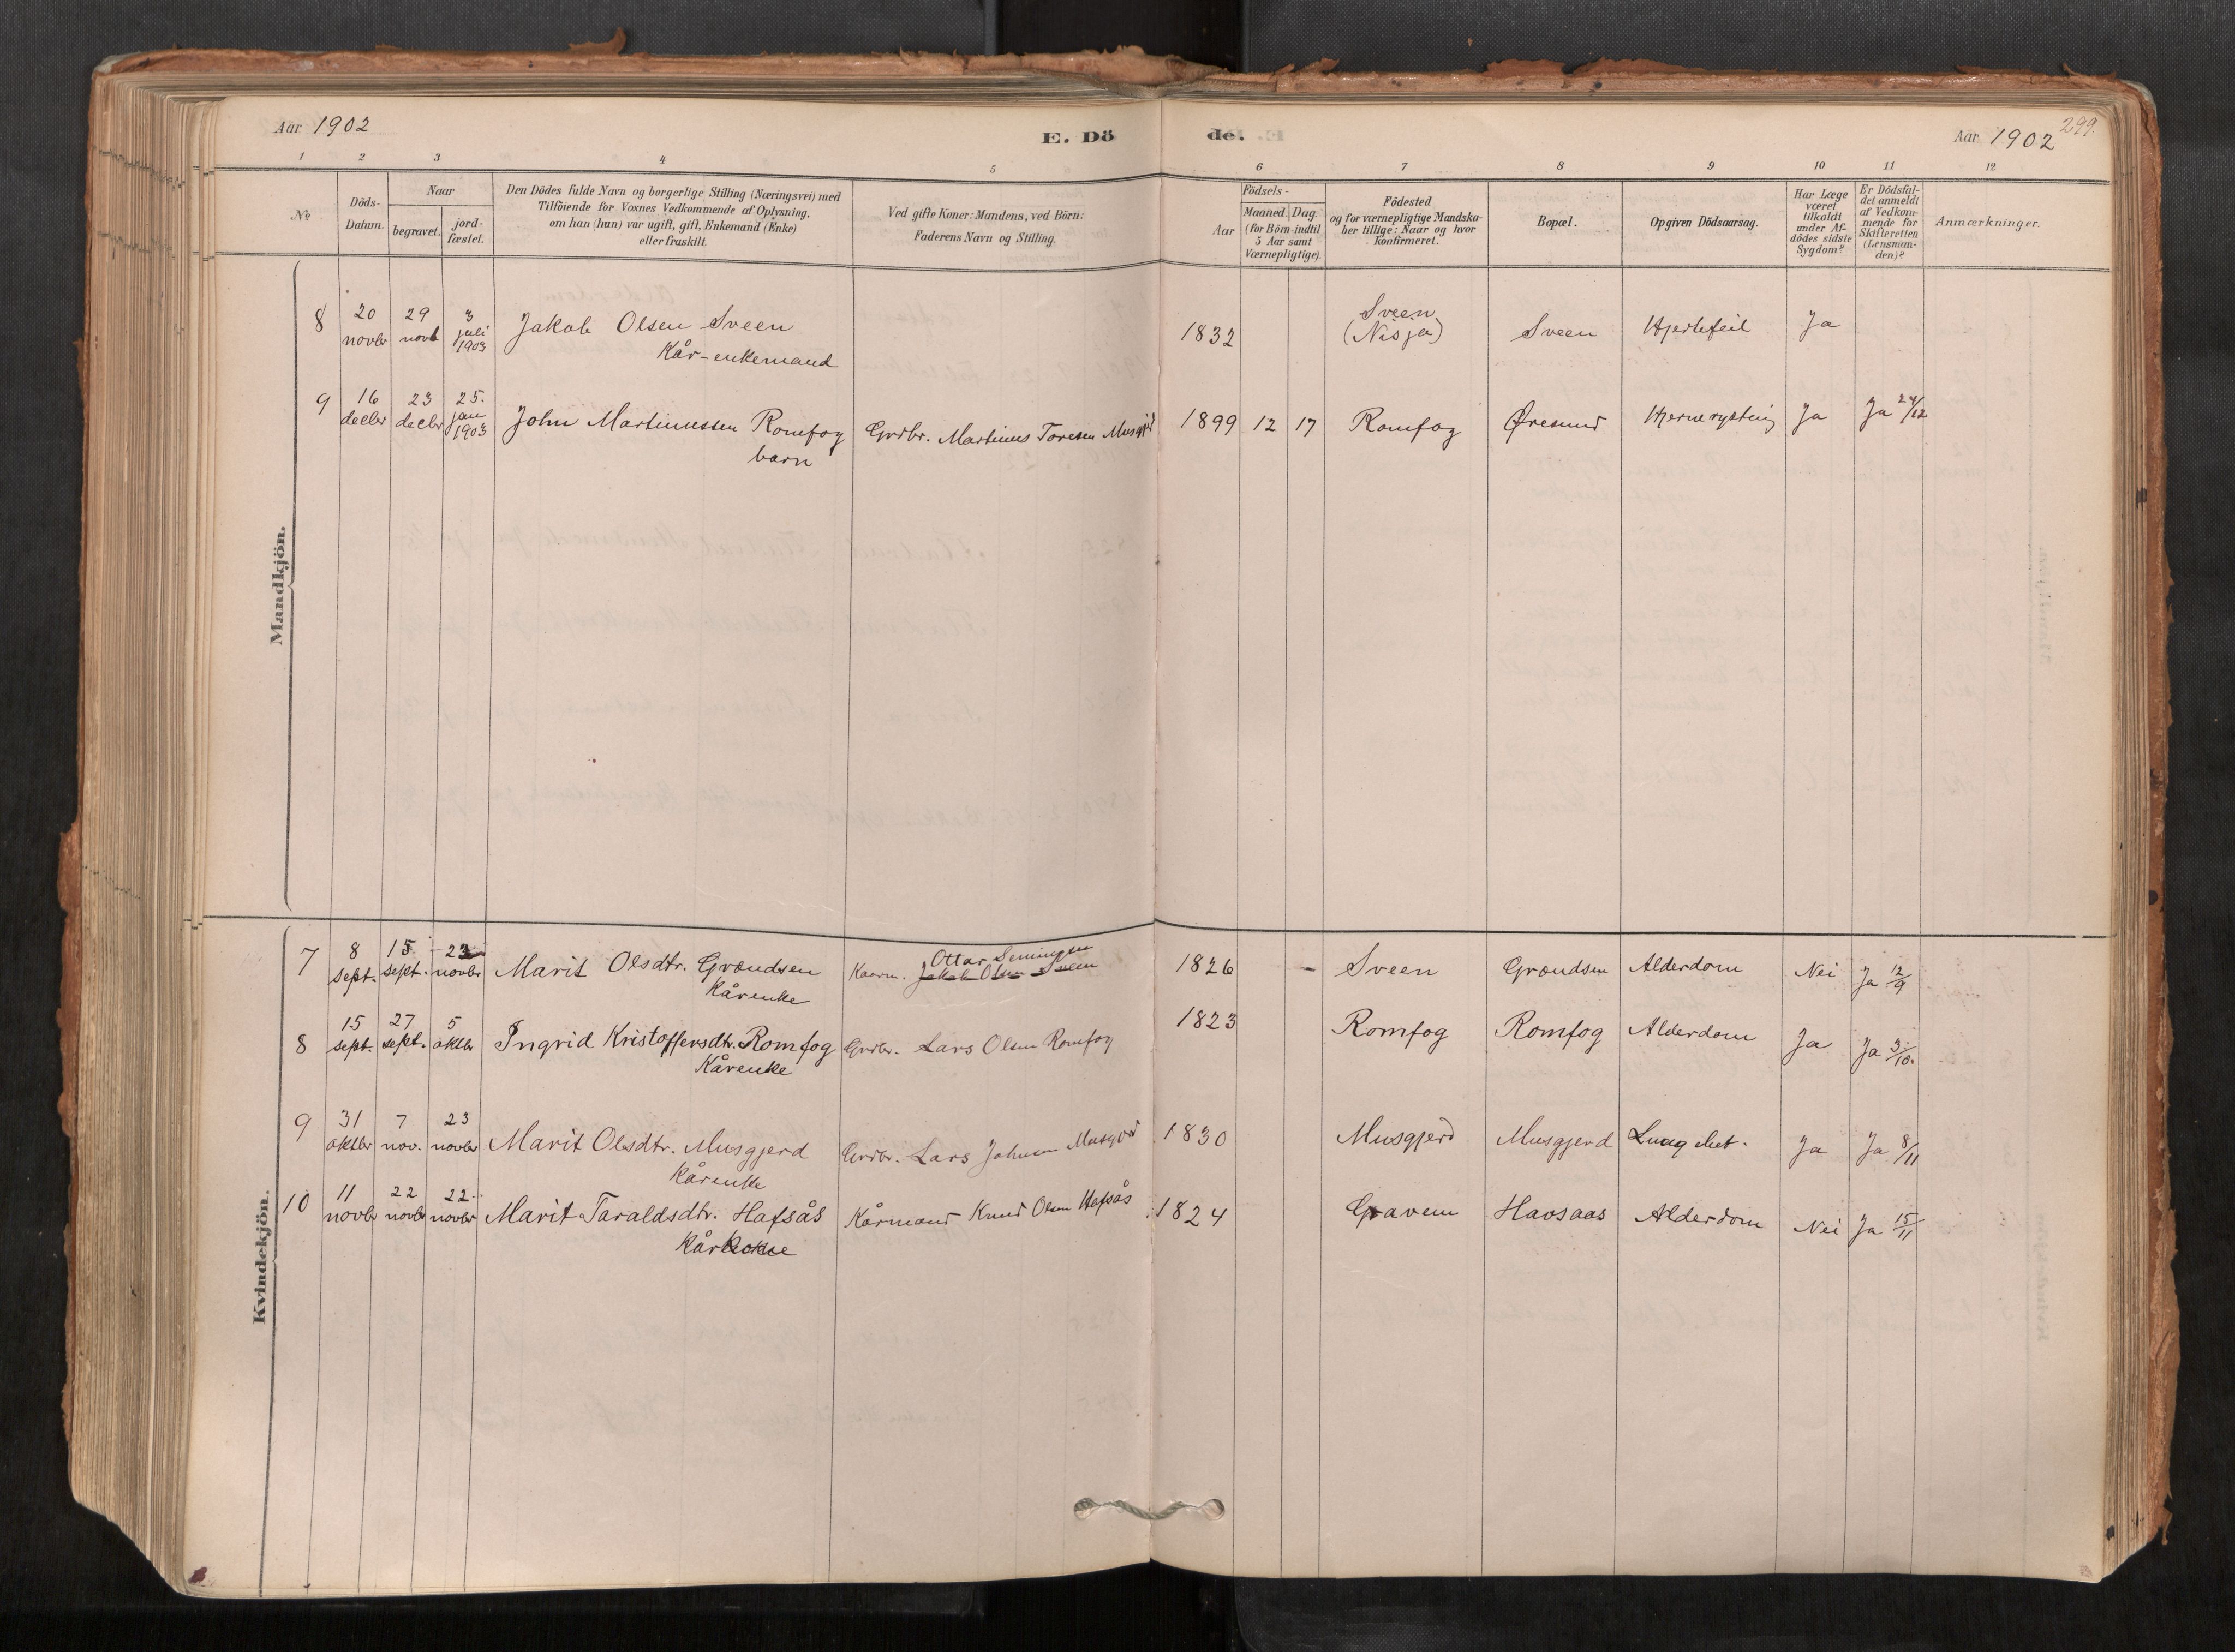 Aar 1902
E. Dö
de.
Aar 1902
299.
1 2 3 4 5 6 7 8 9 10 11 12
No
Döds-
Datum.
Naar
begravet.
jord-
fæstet.
Den Dödes fulde Navn og borgerlige Stilling (Næringsvei) med
Tilföiende for Voxnes Vedkommende af Oplysning,
om han (hun) var ugift, gift, Enkemand (Enke)
eller fraskilt.
Ved gifte Koner: Mandens, ved Börn:
Faderens Navn og Stilling.
Födsels-
Aar
Maaned. Dag.
(for Börn indtil
5 Aar samt
Værnepligtige).
Födested
og for værnepligtige Mandska-
ber tillige: Naar og hvor
konfirmeret.
Bopæl.
Opgiven Dödsaarsag.
Har Læge
været
tilkaldt
under Af-
dödes sidste
Sygdom?
Er Dödsfal-
det anmeldt
af Vedkom-
mende for
Skifteretten
(Lensman-
den)?
Anmærkninger.
Mandkjön.
8 20 novbr 29 novb 3 juli 1903 Jakob Olsen Sveen 1832 Sveen (Nisja) Sveen Hjertefeil Ja
Kår-enkemand
9 16 decbr 23 decbr 25. jan 1903 John Martinussen Romfog Grdbr. Martinus Toresen 1899 12 17 Romfog Øresund Hjernerystning Ja Ja 24/12
barn
Kvindekjön.
Ottar
7 8 sept. 15 sept. 23 novbr Marit Olsdtr. Grøndsen Kaarm. Jakob Olsen Sveen 1826 - Sveen Grøndsen Alderdom Nei Ja 12/9
Kårenke
8 15 sept. 27 sept. 5 oktbr Ingrid Kristoffersdtr. Romfog Grdbr. Lars Olsen Romfog 1823 Romfog Romfog Alderdom Ja Ja 3/10.
Kårenke
9 31 oktbr 7 nov. 23 novbr Marit Olsdtr. Musgjerd Grdbr. Lars Johnsen Musgjerd 1830 Musgjerd Musgjerd Ja Ja 8/11
Kårenke
10 11 novbr 22 novbr 22. novbr Marit Taraldsdtr. Hafsås Kårmand Knud Olsen Hafsås 1824 Gravem Havsaas Alderdom Nei Ja 15/11